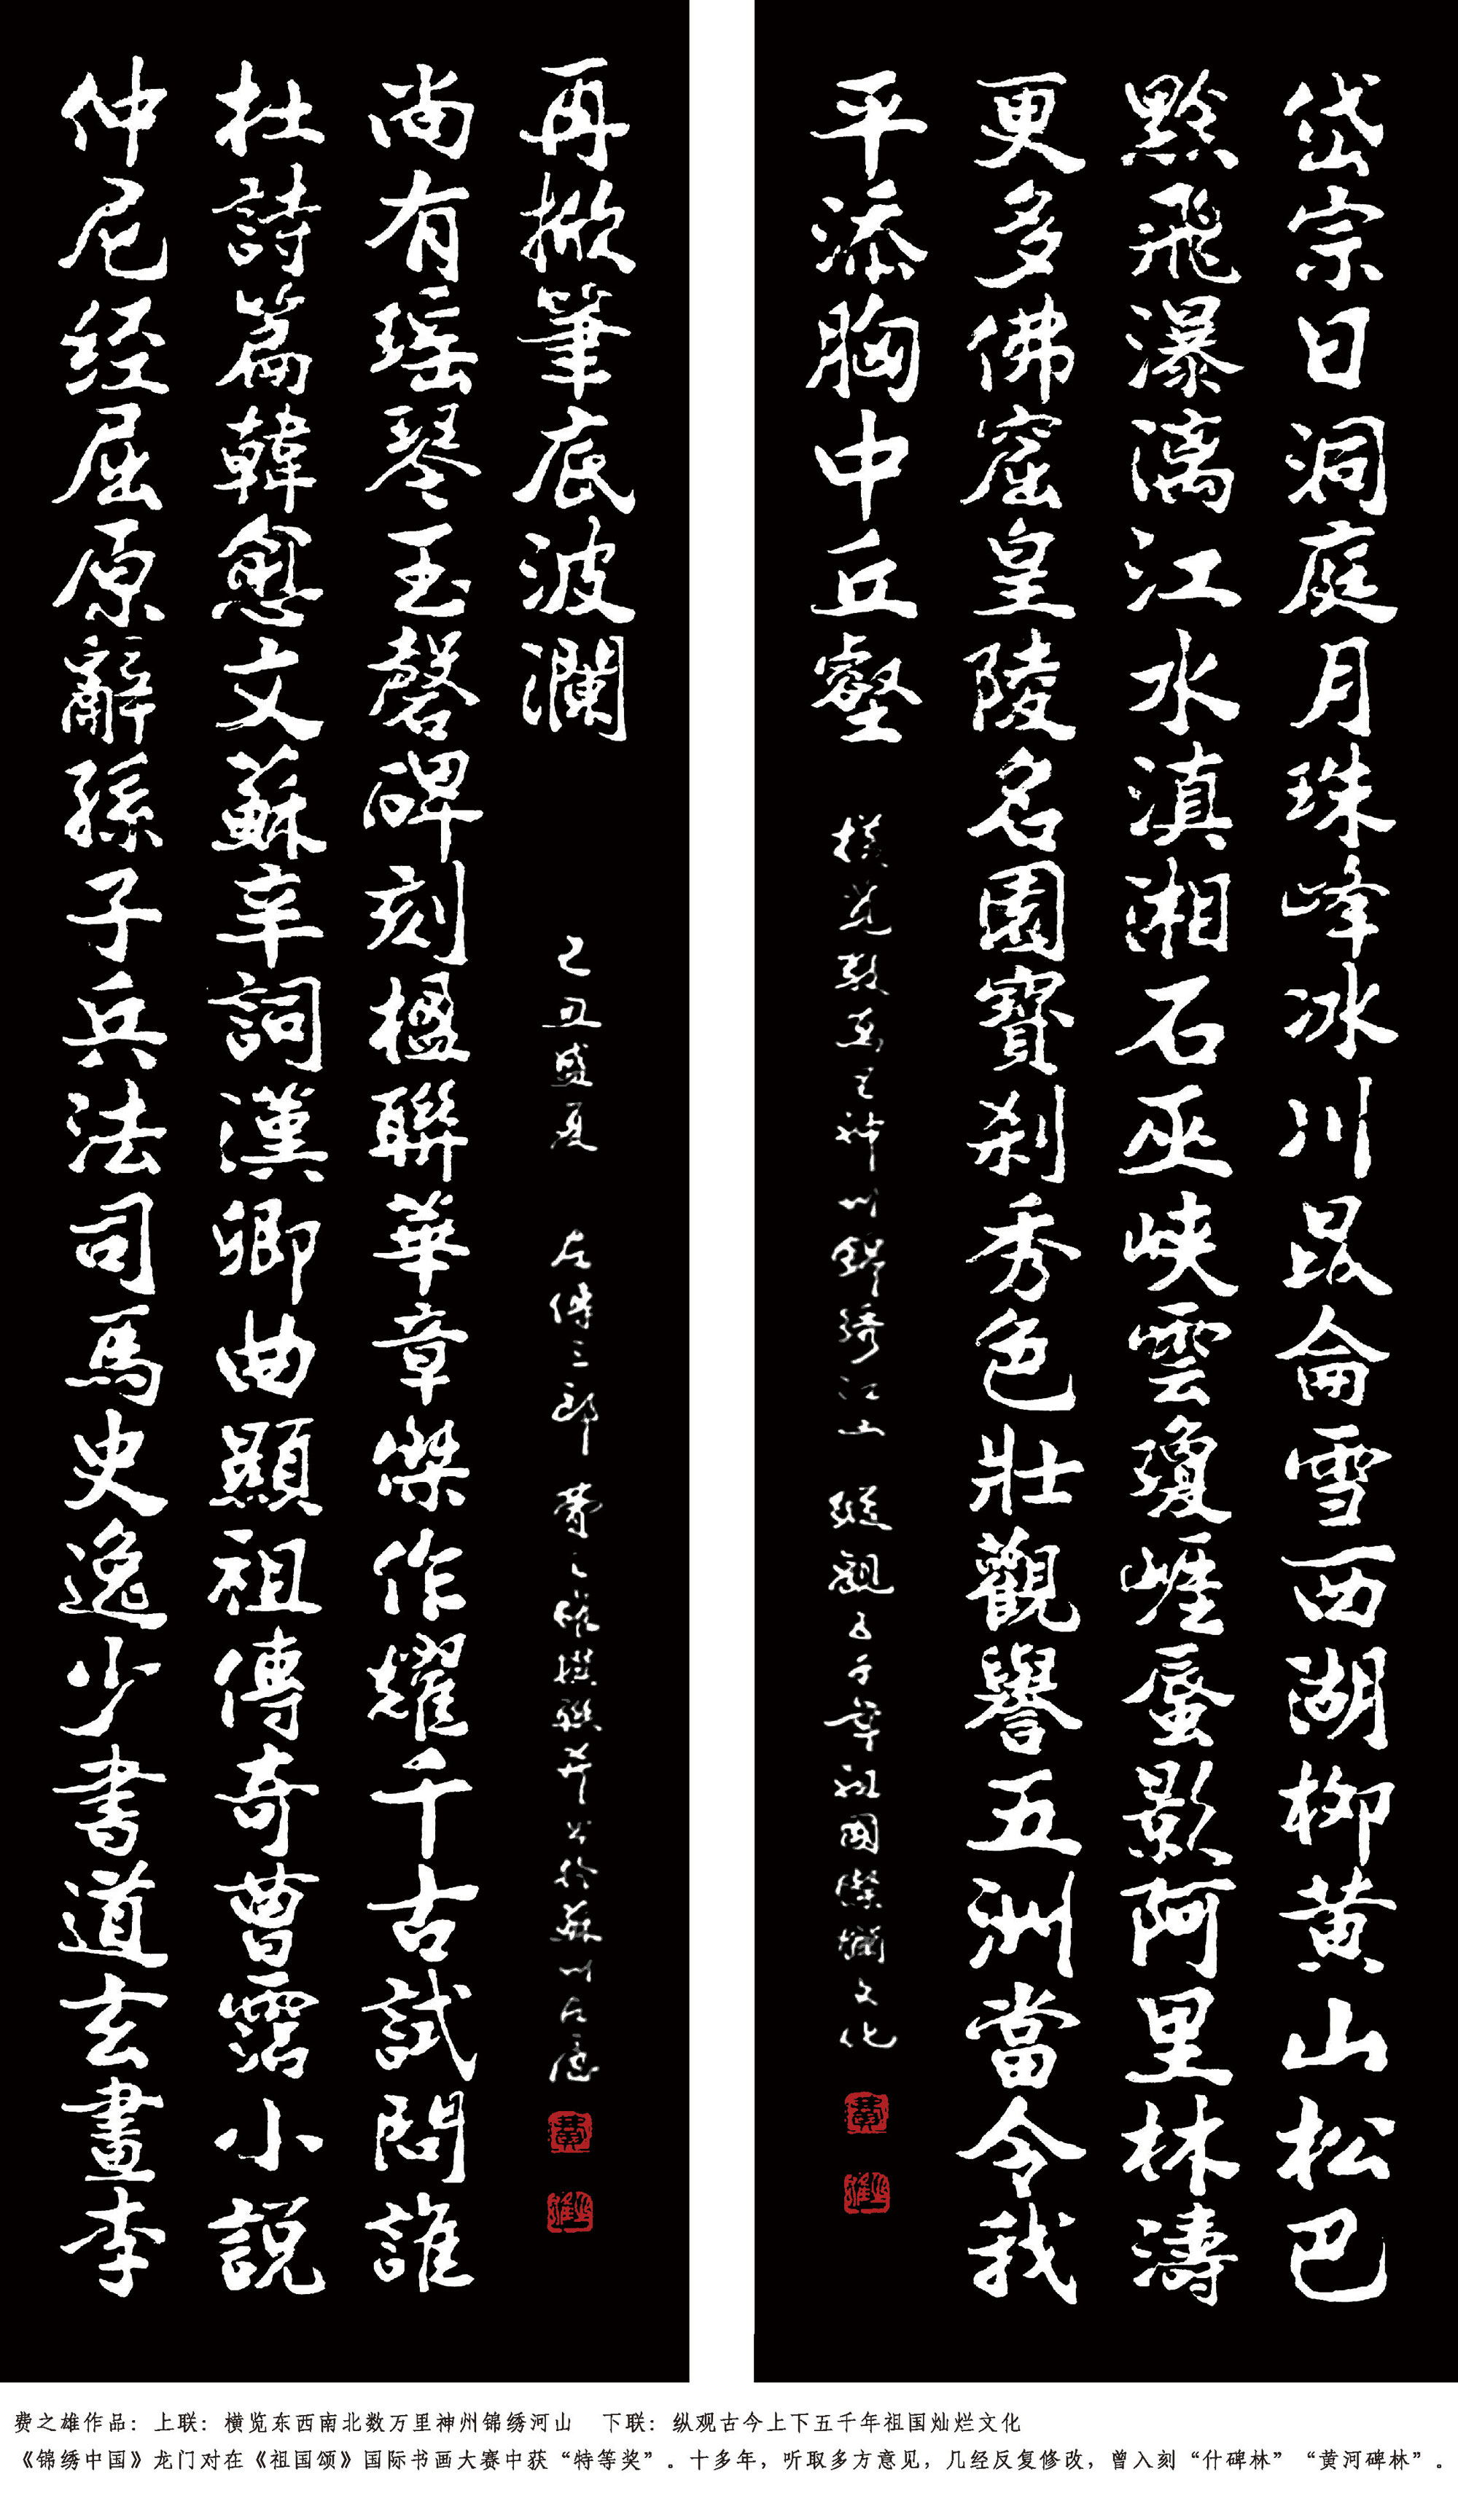 岱宗日洞庭月珠峰冰川昆侖雪西湖柳黄山松巴
黔飛瀑漓江水滇湘石巫峽雲瓊崖蜃影阿里林濤
更多佛窟皇陵名園寶刹秀色壯觀譽五洲當令我
平添胸中丘壑
橫覽數萬里神州錦綉江山 縱觀五千年祖國燦爛文化
仲尼经屈原辭孫子兵法司馬史逸少書道玄畫李
杜詩篇韓愈文蘇辛詞漢卿曲顯祖傳奇曹霑小説
尚有瑶琴玉磬碑刻楹聯華章傑作耀千古試問誰
再掀筆底波瀾
丑盛夏 三郎 費之雄撰聯并書於蘇州
费之雄作品：上联：横览东西南北数万里神州锦绣河山 下联：纵观古今上下五千年祖国灿烂文化
《锦绣中国》龙门对在《祖国颂》国际书画大赛中获“特等奖”。十多年，听取多方意见，几经反复修改，曾入刻“什碑林”“黄河碑林”。